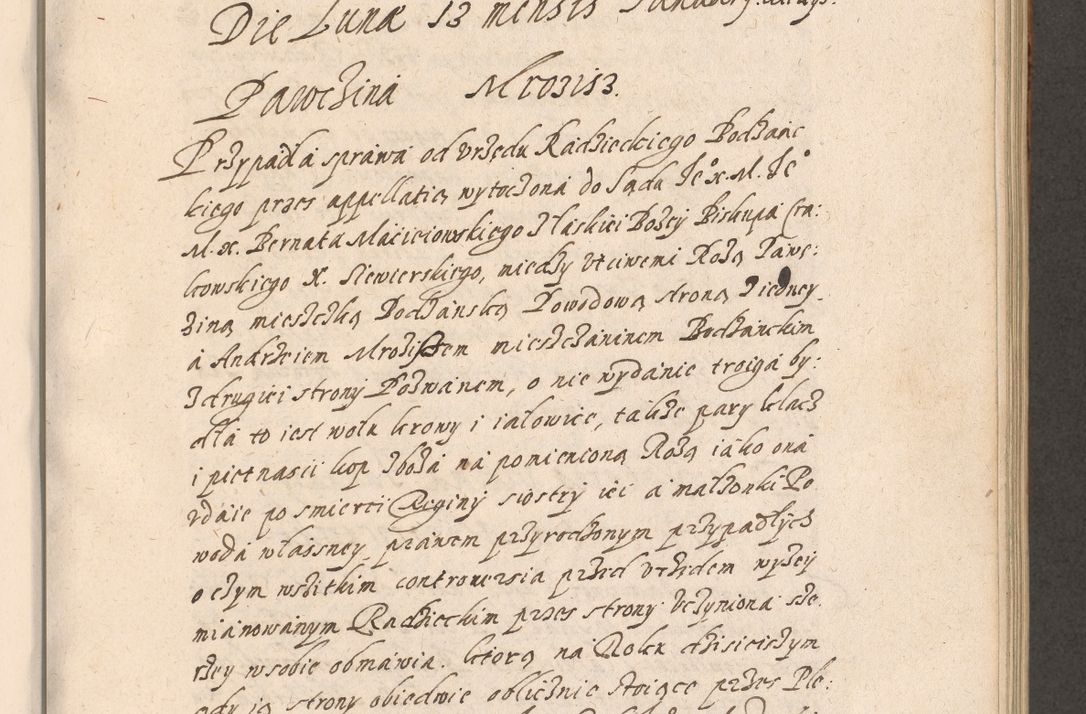 Die Lunæ 13 mensis
Pawczina Mrozisz.
Przypadła sprawa od vrzędu Radzieckiego Bodzanc
kiego przes appellatią wytoczona do Sądu Je° x. M. Je°
M. X. Bernata Macieiowskiego z łaskiei Bożey Biskupa Cra:
kowskiego X. Siewierskiego, między vcciwemi Rożą Pawc:
ziną miesczką Bodzanską Powodową stroną z iedney
a Andrzeiem Mroziszem miesczaninem Bodzanckim
z drugiei strony Pozwanem, o nie wydanie troiga by:
dła to iest wołu krowy i iałowice, także pary klacz
i pietnascii kop zboża na pomienioną Rożą iako ona
zdaie po smierci Reginy siostry iei a małżonki Po
woda własney prawem przyrodzonym przypadłych
o czym wszitkim controuersia przed vrzędem wyżey
mianowanym Radzieckim przes strony vczyniona sze
rzey w sobie obmawia. ktorą na Roku dzisieiszym
gdy ią strony obiedwie oblicznie stoiące przes Ple: